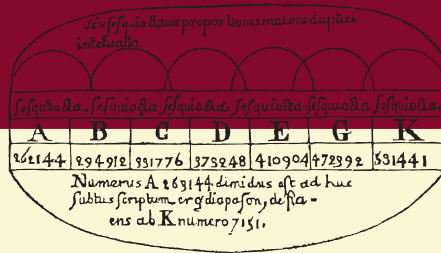 Sex sesquioctauae proportiones maiores duplici
interuallo
sesquiocta. sesquiocta sesquiocta. sesquiocta. sesquiocta. sesquiocta.
A B C D E G K
262144 294912 331776 373248 410904 472392 531441
Numerus A 263144 dimidius est ad huc
subtus scriptum erg diapason, desta-
ens ab K numero 7151.